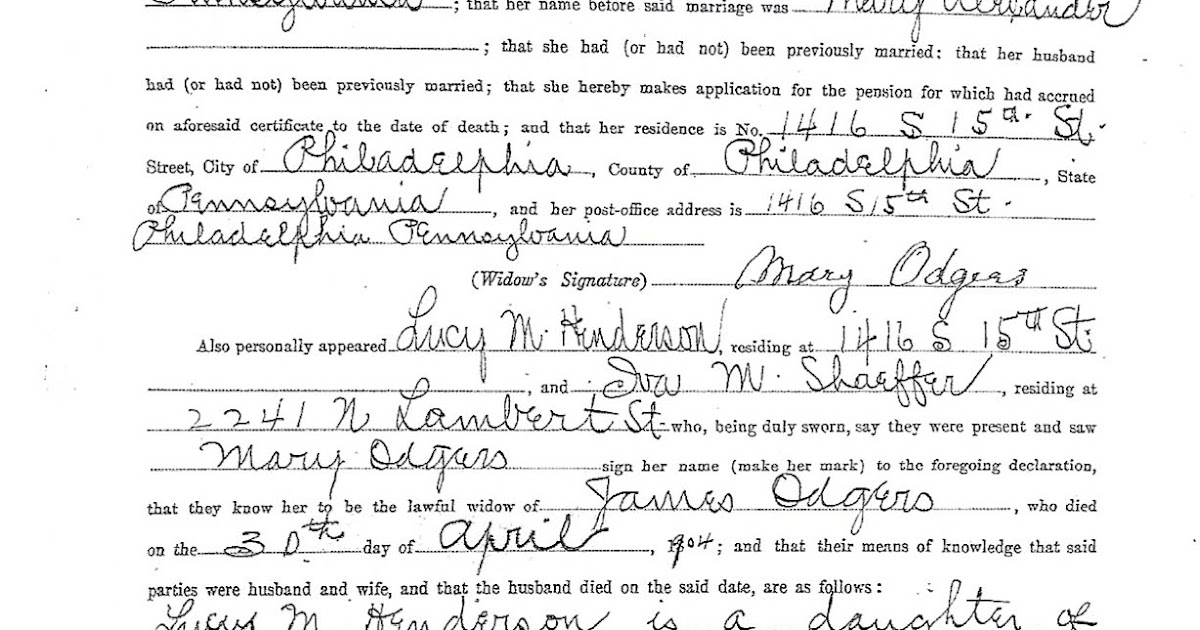 Pennsylvania; that her name before said marriage was Mary Alexander
; that she had (or had not) been previously married: that her husband
had (or had not) been previously married; that she hereby makes application for the pension for which had accrued
on aforesaid certificate to the date of death; and that her residence is No. 1416 S 15th. St.
Street, City of Philadelphia, County of Philadelphia, State
of Pennsylvania, and her post-office address is 1416 S 15th St.
Philadelphia Pennsylvania
(Widow's Signature) Mary Odgers
Also personally appeared Lucy M. Henderson, residing at 1416 S 15th St.
, and Iva M. Shaeffer, residing at
2241 N Lambert St. who, being duly sworn, say they were present and saw
Mary Odgers sign her name (make her mark) to the foregoing declaration,
that they know her to be the lawful widow of James Odgers, who died
on the 30th day of April, 1904; and that their means of knowledge that said
parties were husband and wife, and that the husband died on the said date, are as follows:
Lucy M Henderson is a daughter of